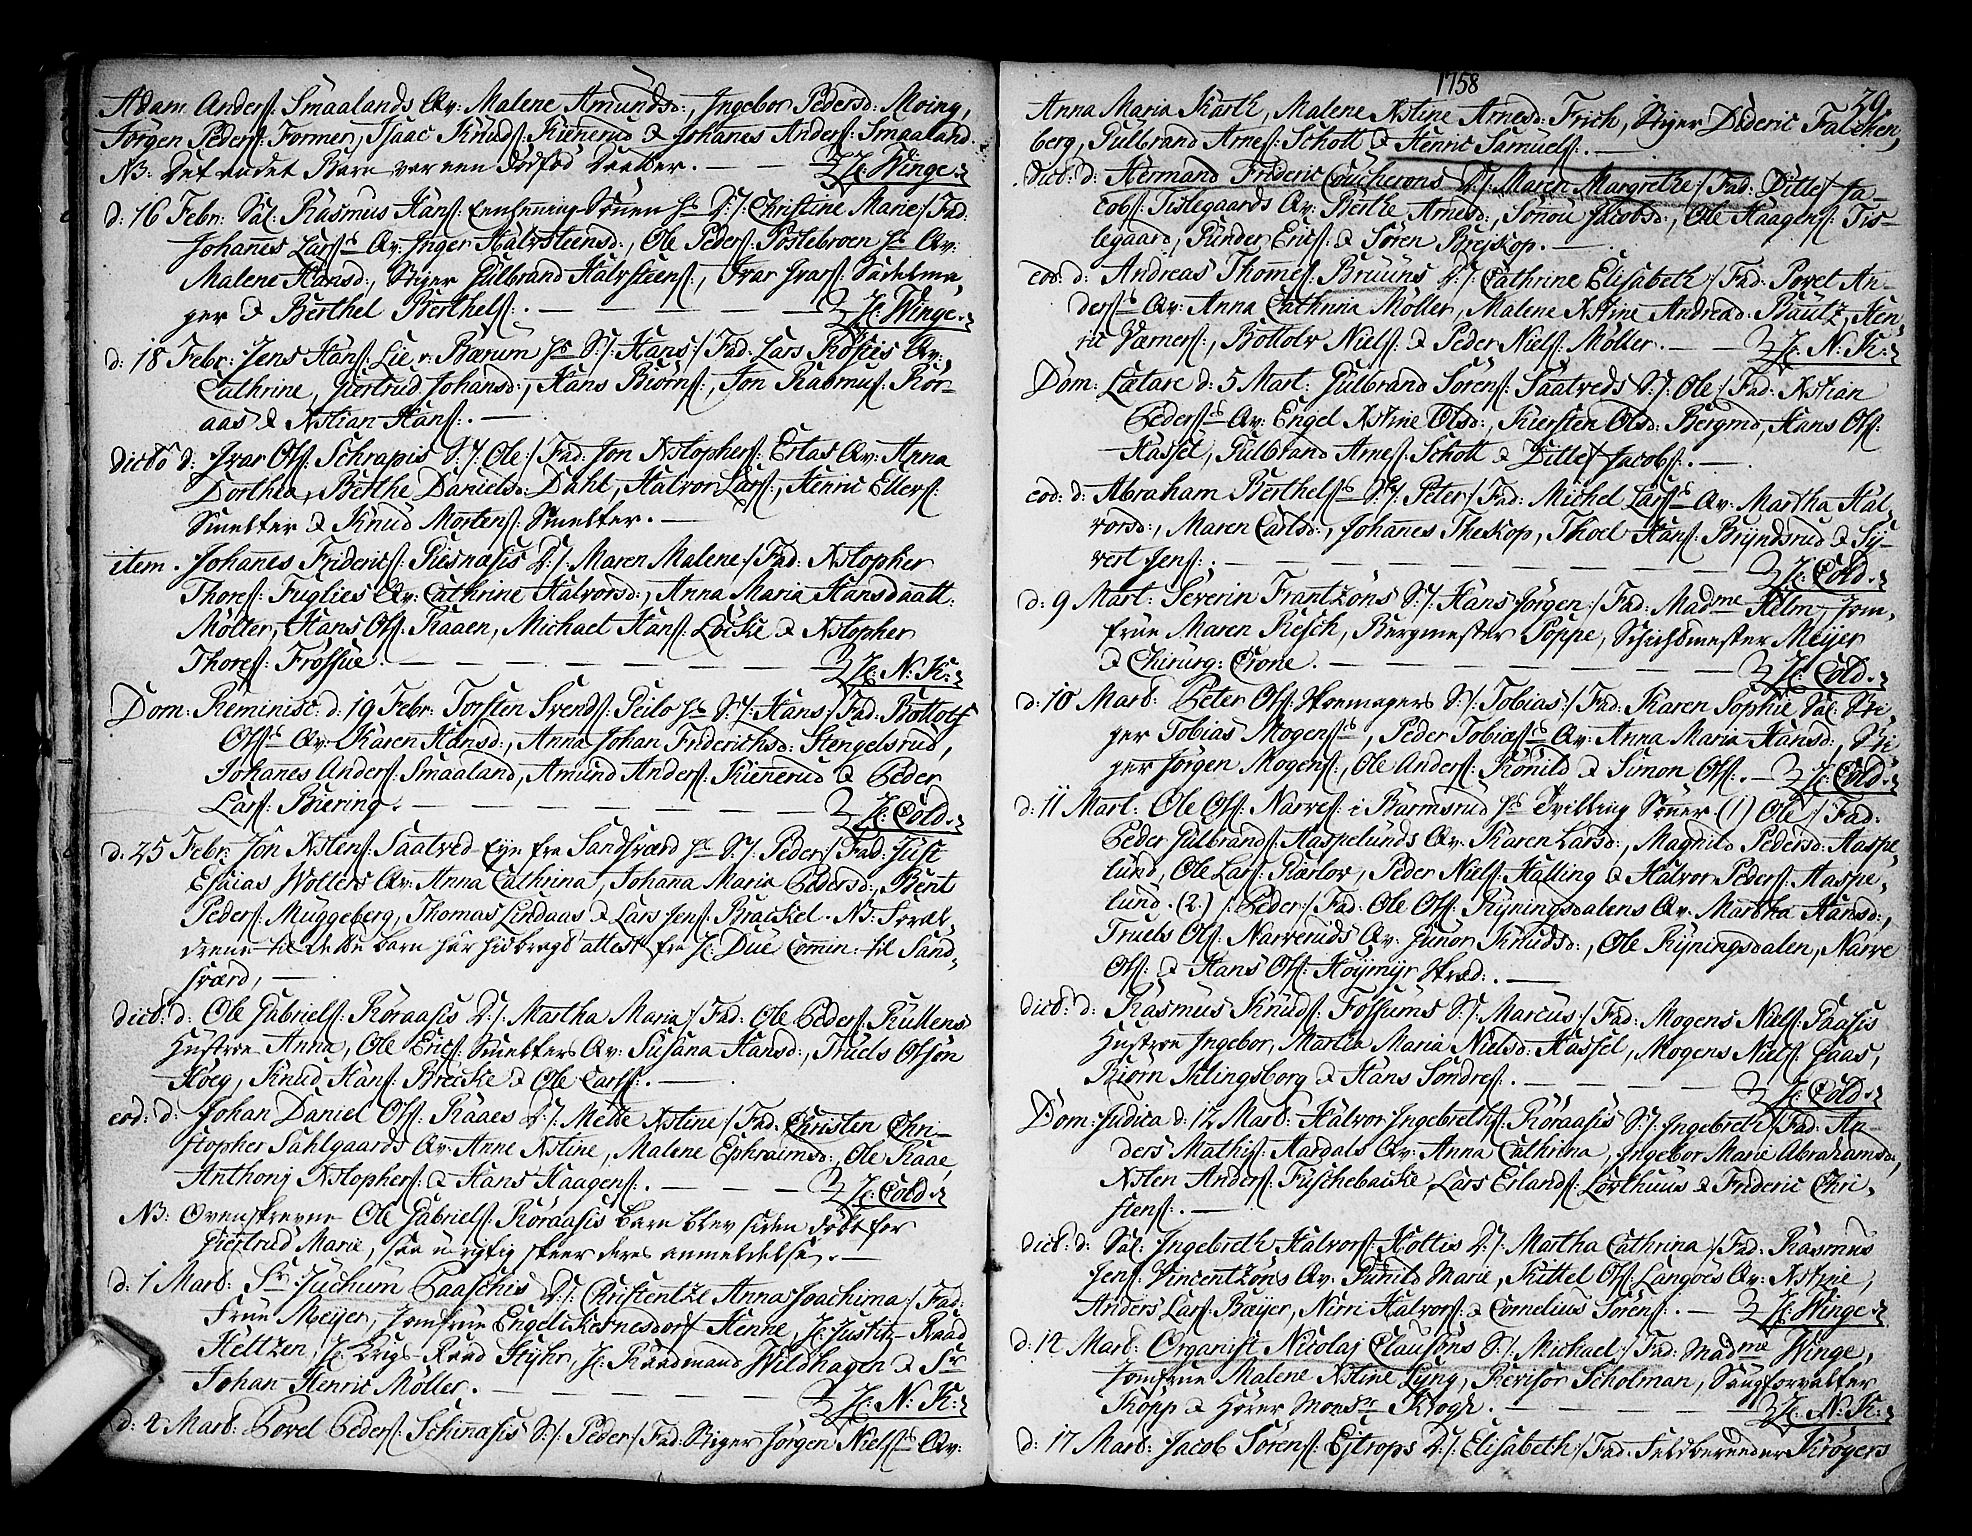 Adam Anders: Smaalands Qv: Malene Amundsd:, Ingebor Pedersd: Moing,
Jørgen Peders: Former, Isaac Knuds: Kienerud & Johanes Anders: Smaaland.
NB: Det andet Barn var een dødfød Daatter. — H: Winge.
d: 16 Febr: Sal: Rasmus Hans: Hs D:/: Christine Marie:/ Fad:
Johanes Lars:s Qv: Inger Halvsteensd:, Ole Peders: Hs Qv:
Malene Hansd:, Stiger Gulbrand Halvsteens:, Ivar Ivars: Sadelma-
ger & Berthel Berthels:. — — — — H: Winge.
d: 18 Febr: Jens Hans: Lie v: Bærum Hs S:/: Hans:/ Fad: Lars Qv:
Cathrine, Giertrud Johansd:, Hans Biørns:, Jon Rasmus: Rør-
aas & Xstian Hans:. —
dicto d: Ivar Ols: Schrapis S:/: Ole:/ Fad: Jon Xstophers: Qv: Anna
Dorthea, Berthe Danielsd: Dahl, Halvor Lars:, Henric Ellers:
Smelter & Knud Mortens: Smelter. —
item. Johanes Frideric: D:/: Maren Malene:/ Fad: Xstopher
Thores: Fuglies Qv: Cathrine Halvorsd:, Anna Maria Hansdaatt:
Møller, Hans Ols: Raaen, Michael Hans: Løcke & Xstopher
Thores: Frøssue. — — — — H: N: K:
Dom: Reminisc: d: 19 Febr: Torsten Svends: Hs S:/: Hans:/ Fad: Bottolf
Ols:s Qv: Karen Hansd:, Anna Johan Friderichsd: Stengelsrud,
Johanes Anders: Smaaland, Amund Anders: Kienerud & Peder
Lars: Biering. — — — — H: Cold.
d: 25 Febr: Jon Xstens: Saatved fra Sandsværd Hs S:/: Peder:/ Fad: Just
Esaias Wolters Qv: Anna Cathrina, Johana Maria Pedersd:, Bent
Peders: Muggeberg, Thomas Lindaas & Lars Jens: Brackel. NB: Foræl-
drene til dette barn har hidbragt attest fra H: Due Comin: til Sand-
sværd. —
dict: d: Ole Gabriels: Røraasis D:/: Martha Maria:/ Fad: Ole Peders: Rullens
Hustroe Anna, Ole Erics: Smelters Qv: Susana Hansd:, Truels Olsøn
Høeg, Knud Hans: Brecke & Ole Carls:. —
eod: d: Johan Daniel Ols: Raaes D:/: Mette Xstine:/ Fad: Christen Chri-
stopher Sahlgaards Qv: Anne Xstine, Malene Ephraimsd:, Ole Raae,
Anthony Xstophers: & Hans Haagens:. — — — H: Cold.
NB: Ovenskrevne Ole Gabriels: Røraasis barn blev siden døbt for
Giertrud Marie, saa urigtig skeer deres anmeldelse. —
d: 1 Mart: Sr. Juchum Paaschis D:/: Christentze Anna Joachima:/ Fad:
Frue Meyer, Jomfrue Engelike Henne, H: Justitz-Raad
Heltzen, H: Krigs-Raad Styhr, H: Raadmand Wildhagen & Sr
Johan Henric Møller. — — — — H: N: K:
d: 4 Mart: Povel Peders: Schinasis S:/: Peder:/ Fad: Stiger Jørgen Niels:s Qv:
1758
29.
Anna Maria Karth, Malene Xstine Arnesd: Frich, Stiger Dideric Falcken-
berg, Gulbrand Arnes: Schott & Henric Samuels:. —
dict: d: Hermand Frideric Coucherons D:/: Maren Margrethe:/ Fad: Ditlef Ja-
cobs: Tislegaards Qv: Berthe Arnesd:, Jacobsd:, Ole Haagens: Tis-
legaard, Gunder Erics: & Søren Brejskop. —
eod: d: Andreas Thomes: Bruuns D:/: Cathrine Elisabeth:/ Fad: Povel An-
ders:s Qv: Anna Cathrina Møller, Malene Xstine Andread: Bautz, Hen-
ric Værners:, Bottolv Niels: & Peder Niels: Møller. — H: N: K:
Dom: Lætare d: 5 Mart: Gulbrand Sørens: Saatveds S:/: Ole:/ Fad: Xstian
Peders:s Qv: Engel Xstine Olsd:, Kiersten Olsd: Bergmd, Hans Ols:
Hassel, Gulbrand Arnes: Schott & Ditlef Jacobs:. —
eod: d: Abraham Berthels:s S:/: Peter:/ Fad: Michel Lars:s Qv: Martha Hal-
vorsd:, Maren Carlsd:, Johanes Theskop, Thoel Hans: Bryndsrud & Sy-
vert Jens:. — — — — H: Cold.
d: 9 Mart: Severin Frantzøns S:/: Hans Jørgen:/ Fad: Madme Helm, Jom-
frue Maren Resch, Bergmester Poppe, Schichtmester Meyer
& Chirurg: Crone. — — — H: Cold.
d: 10 Mart: Peter Ols: Skomagers S:/: Tobias:/ Fad: Karen Sophie Sal: Sti-
ger Tobias Mogens:s, Peder Tobiæs:s Qv: Anna Maria Hansd:, Sti-
ger Jørgen Mogens:, Ole Anders: Rønild & Simon Ols:. — H: Cold.
d: 11 Mart: Ole Ols: Narves: i Barmsrud Hs Tvilling Sønner (1) Ole:/ Fad:
Peder Gulbrands: Haspelunds Qv: Karen Larsd:, Magnild Pedersd: Haspe-
lund, Ole Lars: Kiærlov, Peder Niels: Halling & Halvor Peders: Haspe-
lund. (2.) /: Peder:/ Fad: Ole Ols: Ryningsdalens Qv: Martha Hansd:,
Truels Ols: Narveruds Qv: Gunor Knudsd:, Ole Ryningsdalen, Narve
Ols: & Hans Ols: Høymyr . —
dict: d: Rasmus Knuds: Fossums S:/: Marcus:/ Fad: Mogens Niels: Paasis
Hustroe Ingebor, Martha Maria Nielsd: Hassel, Mogens Niels: Paas,
Biørn Klingsborg & Hans Søndres:. — — H: Cold.
Dom: Judica d: 12 Mart: Halvor Ingebreths: Røraasis S:/: Ingebreth:/ Fad: An-
ders Mathis: Aardals Qv: Anna Cathrina, Ingebor Marie Abrahamsd:,
Xsten Anders: Fuschebacke, Lars Erlands: Lorthuus & Frideric Chri-
stens:. —
dict: d: Sal: Ingebreth Halvors: Holtis D:/: Martha Cathrina:/ Fad: Rasmus
Jens: Vincentzøns Qv: Gunild Marie, Kittel Ols: Langoes Qv: Xstine,
Anders Lars: Bæyer, Nirri Halvors: & Cornelius Sørens:. — H: Winge.
d: 14 Mart: Organist Nicolaj Clausøns S:/: Michael:/ Fad: Madme Winge,
Jomfrue Malene Xstine Lyng, Revisor Scholman, Saugforvalter
Kopp & Hører Monsr Krogh. — — — H: N: K:
d: 17 Mart: Jacob Sørens: Ejtrops D:/: Elisabeth:/ Fad: Feldbereeder Krøgers